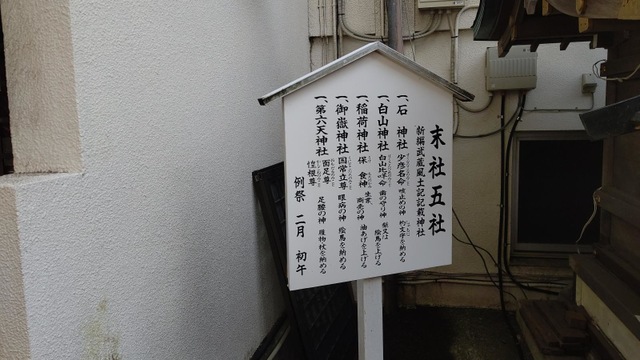 末社五社
新編武蔵風土記記載神社
一、石 神社 少彦名命 咳止めの神 杓文字を納める
一、白山神社 白山比咩命 歯のやり神 梨又は絵馬を上げる
一、稲荷神社 保食神 生業、商売の神 油あげを上げる
一、御嶽神社 国常立尊 眼病の神 絵馬を納める
一、第六天神社 面足尊 惶根尊 足腰の神 履物杖を納める
例祭 二月 初午